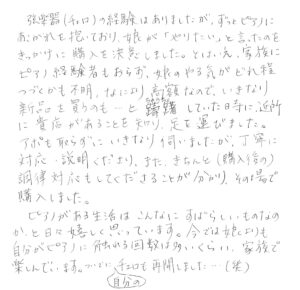 弦楽器(チェロ)の経験はありましたが、ずっとピアノに
あこがれを抱いており、娘が「やりたい」と言ったのを
きっかけに購入を決意しました。とはいえ、家族に
ピアノ経験者もおらず、娘のやる気がどれ程
つづくかも不明、なにより高額なので、いきなり
新品を買うのも…と躊躇していた時に、近所
に貴店があることを知り、足を運びました。
アポも取らずにいきなり伺いましたが、丁寧に
対応・説明くださり、また、きちんと(購入後の)
調律対応もしてくださることが分かり、その場で
購入しました。
ピアノがある生活はこんなにすばらしいものなの
か、と日々嬉しく思っています。今では娘よりも
自分がピアノに触れる回数は多いくらい、家族で
楽しんでいます。ついに、チェロも再開しました…(笑)
自分の